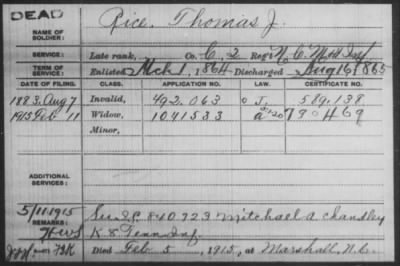 DEAD
NAME OF SOLDIER: Rice, Thomas J.
SERVICE: Late rank, Co. C, 2 Reg't N.C. Mtd Inf
TERM OF SERVICE: Enlisted Mch 1, 1864 Discharged Aug 16, 1865
DATE OF FILING. CLASS. APPLICATION NO. LAW. CERTIFICATE NO.
1883. Aug 7 Invalid, 492.063 J. 589.138
1915 Feb 11 Widow, 1041533 790469
Minor,
ADDITIONAL SERVICES:
5/11-1915 840723 Mitchael A. Chandley
REMARKS: K 8 Tenn Inf.
Died Feb 5, 1915, at Marshall, N.C.